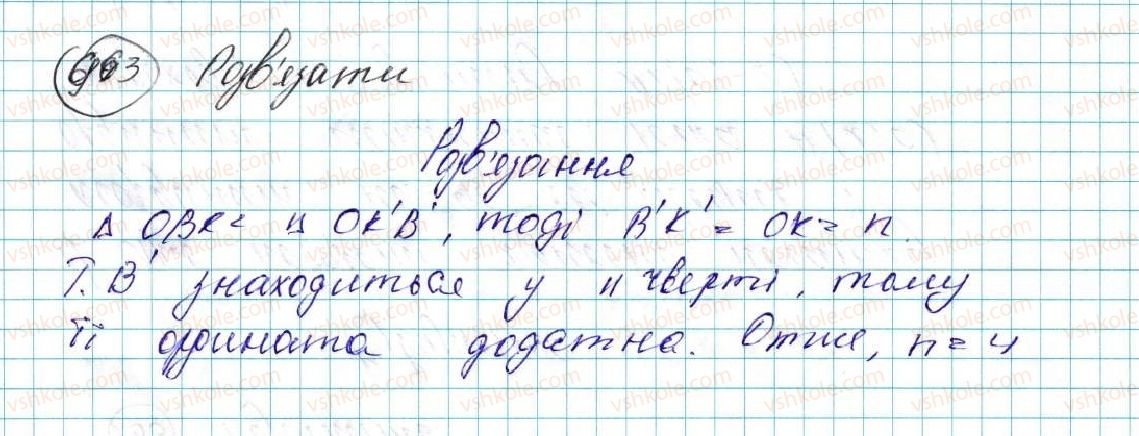 663 Розв'язати
Розв'язання
Δ OBK = Δ OK'B', тоді B'K' = OK = n.
Т. B' знаходиться у II чверті, тому
її ордината додатна. Отже, n = y